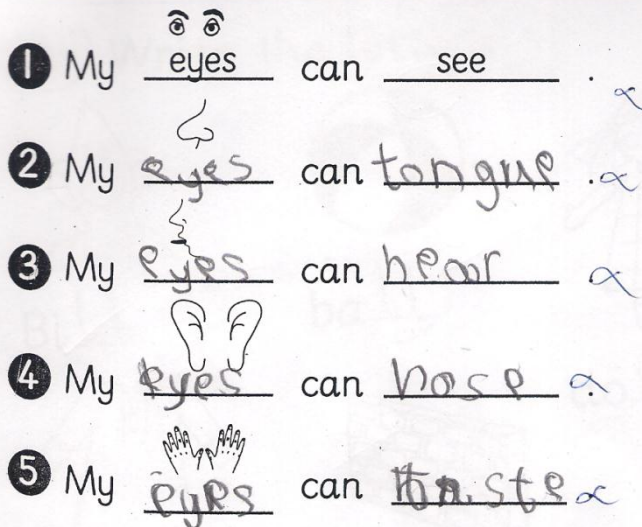 1 My eyes can see .
2 My eyes can tongue .
3 My eyes can hear .
4 My eyes can nose .
5 My eyes can taste